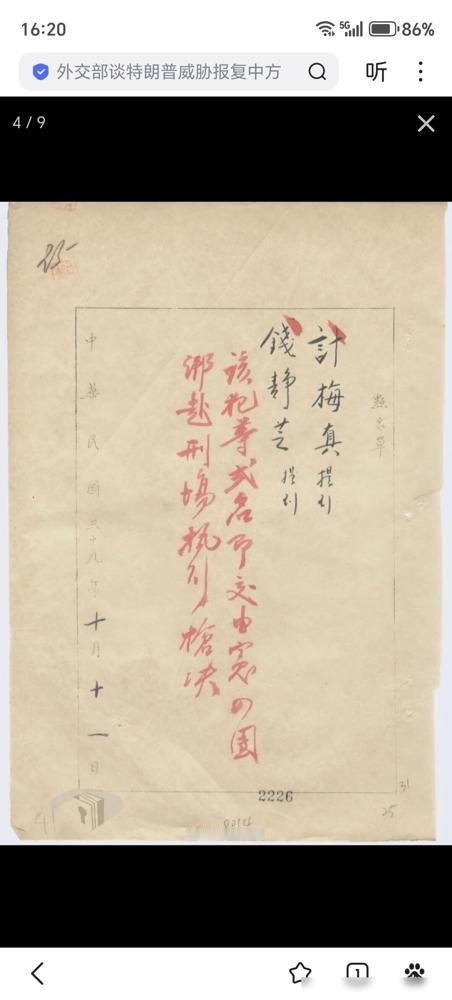 16:20
5G
86%
外交部谈特朗普威胁报复中方
听
4 / 9
點名單
計梅真 提到
錢靜芝 提到
該犯等弍名即交由憲四團
綁赴刑場執行槍決
中華民國三十九年十月十一日
2226
31
25
41
1